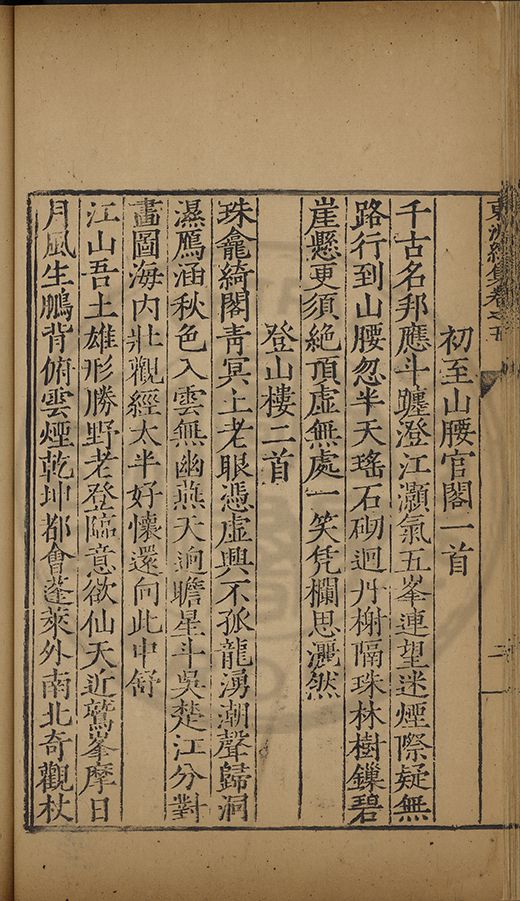 東
集卷之五
初至山腰官閣一首
千古名邦應斗躔澄江灝氣五峯連望迷煙際疑無
路行到山腰忽半天瑤石砌迴丹榭隔珠林樹鏁碧
崖懸更須絶頂虛無處一笑凭欄思灑然
登山樓二首
珠龕綺閣青冥上老眼憑虛興不孤龍湧潮聲歸洞
濕鴈涵秋色入雲無幽燕天逈瞻星斗吳楚江分對
畫圖海内壯觀經太半好懷還向此中舒
江山吾土雄形勝野老登臨意欲仙天近鷲峯摩日
月風生鵬背俯雲煙乾坤都會蓬萊外南北奇觀杖